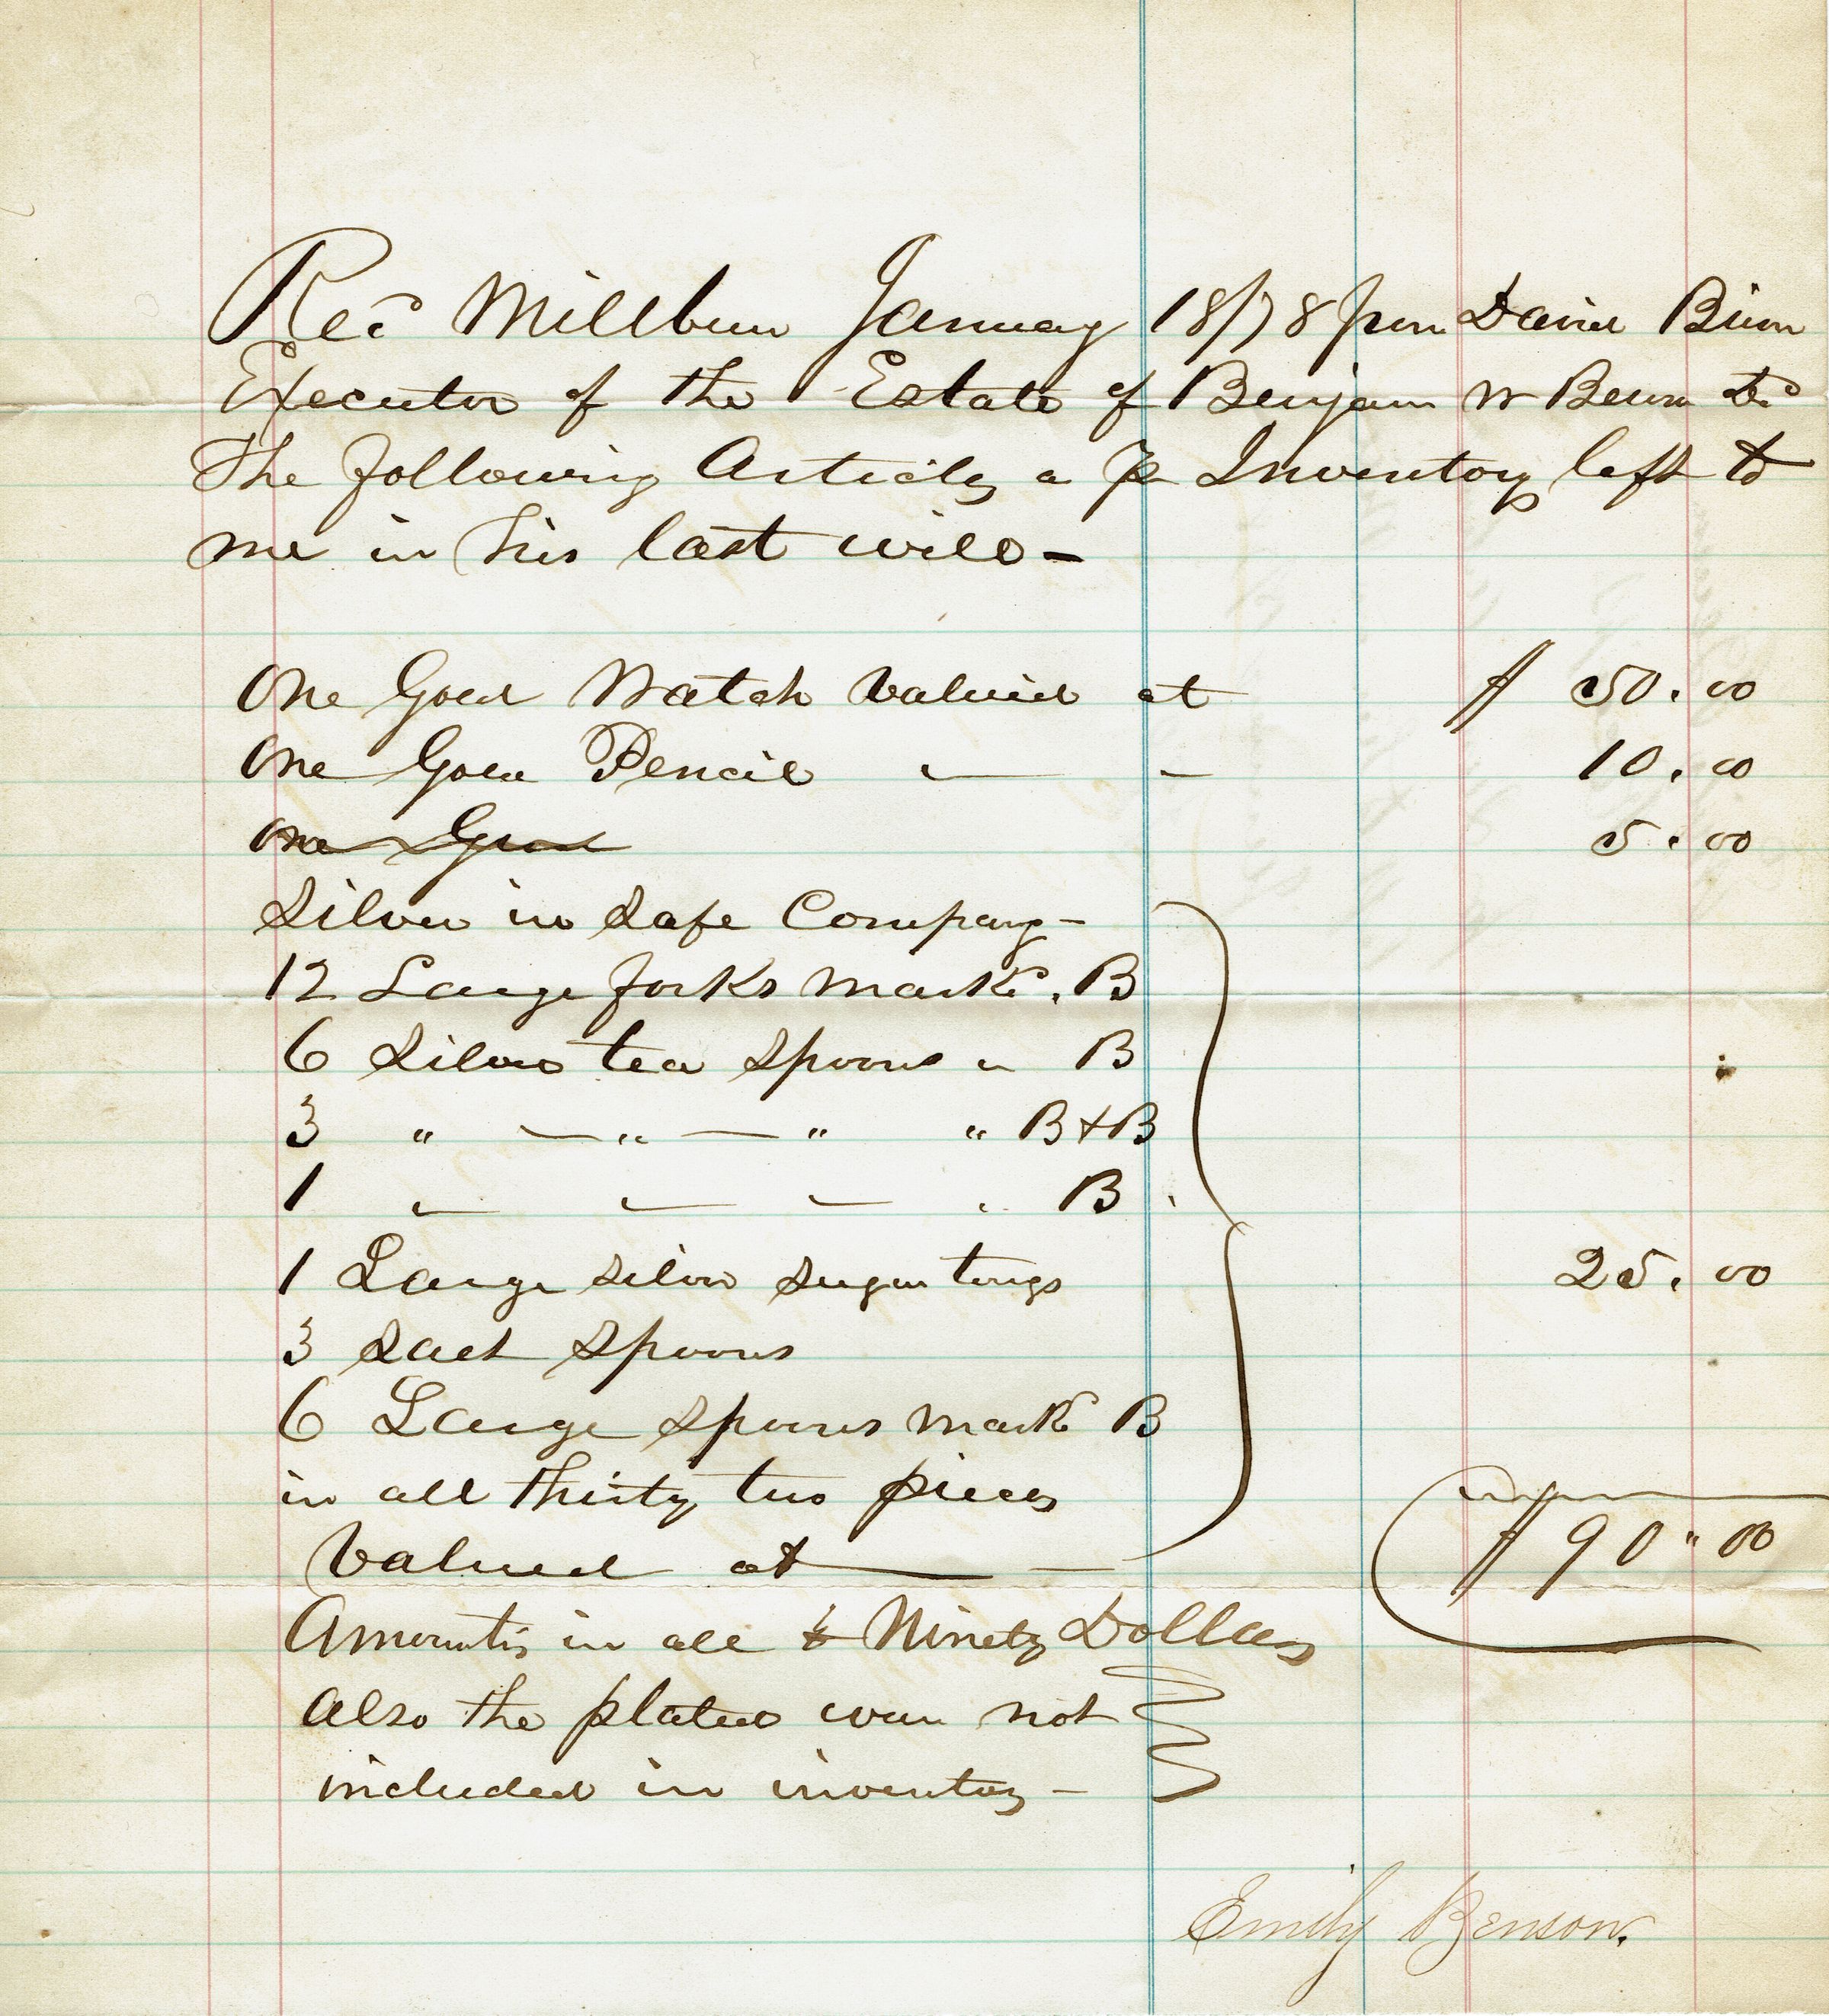 Recd Millburn January 18/78 from David Bism
Executor of the Estate of Benjam W Benson decd
The following Articles as pr Inventory left to
me in his last will -
One Gold Watch valued at $ 50.00
One Gold Pencil " " 10.00
One Gold 5.00
Silver in Safe Company -
12 Large forks markd. B
6 Silver tea Spoons " B
3 " " " " B & B
1 " " " " B
1 Large silver sugar tongs 25.00
3 Salt Spoons
6 Large Spoons markd B
in all thirty two pieces
Valued at $ 90.00
Amounting in all to Ninety Dollars
Also the plated ware not
included in inventory -
Emily Benson.